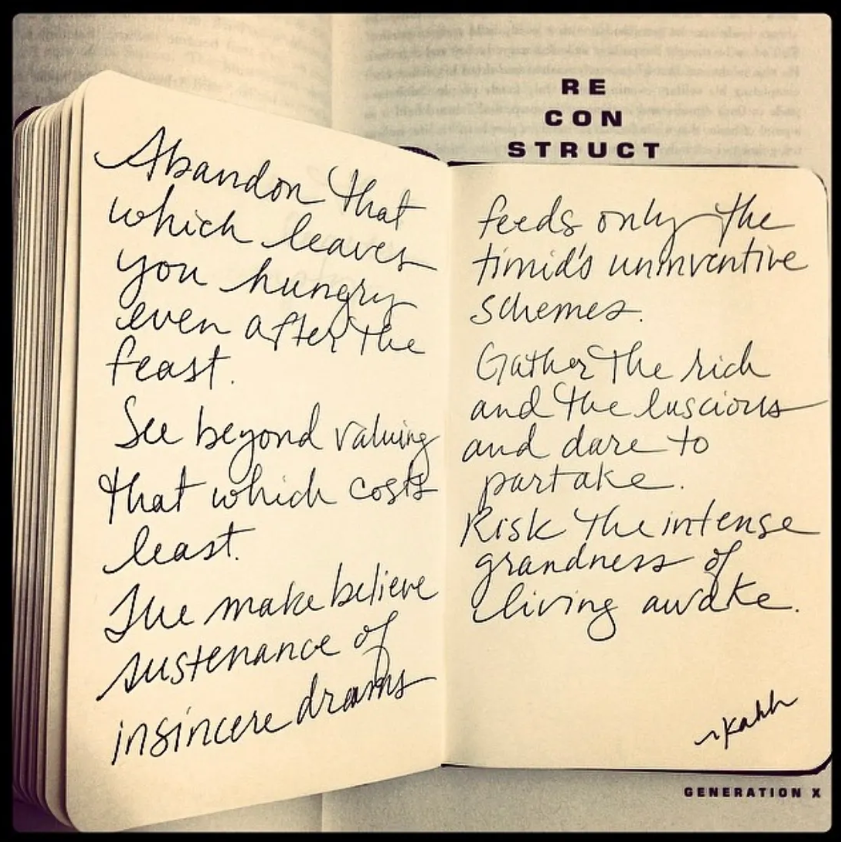 RE
CON
STRUCT
Abandon that
which leaves
you hungry
even after the
feast.
See beyond valuing
that which costs
least.
The make believe
sustenance of
insincere dreams
feeds only the
timid's uninventive
schemes.
Gather the rich
and the luscious
and dare to
partake.
Risk the intense
grandness of
living awake.
~kahh
GENERATION X